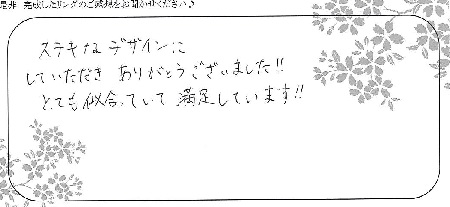 是非 完成したリングのご感想をお聞かせください♪
ステキなデザインに
していただき ありがとうございました!!
とても似合っていて 満足しています!!